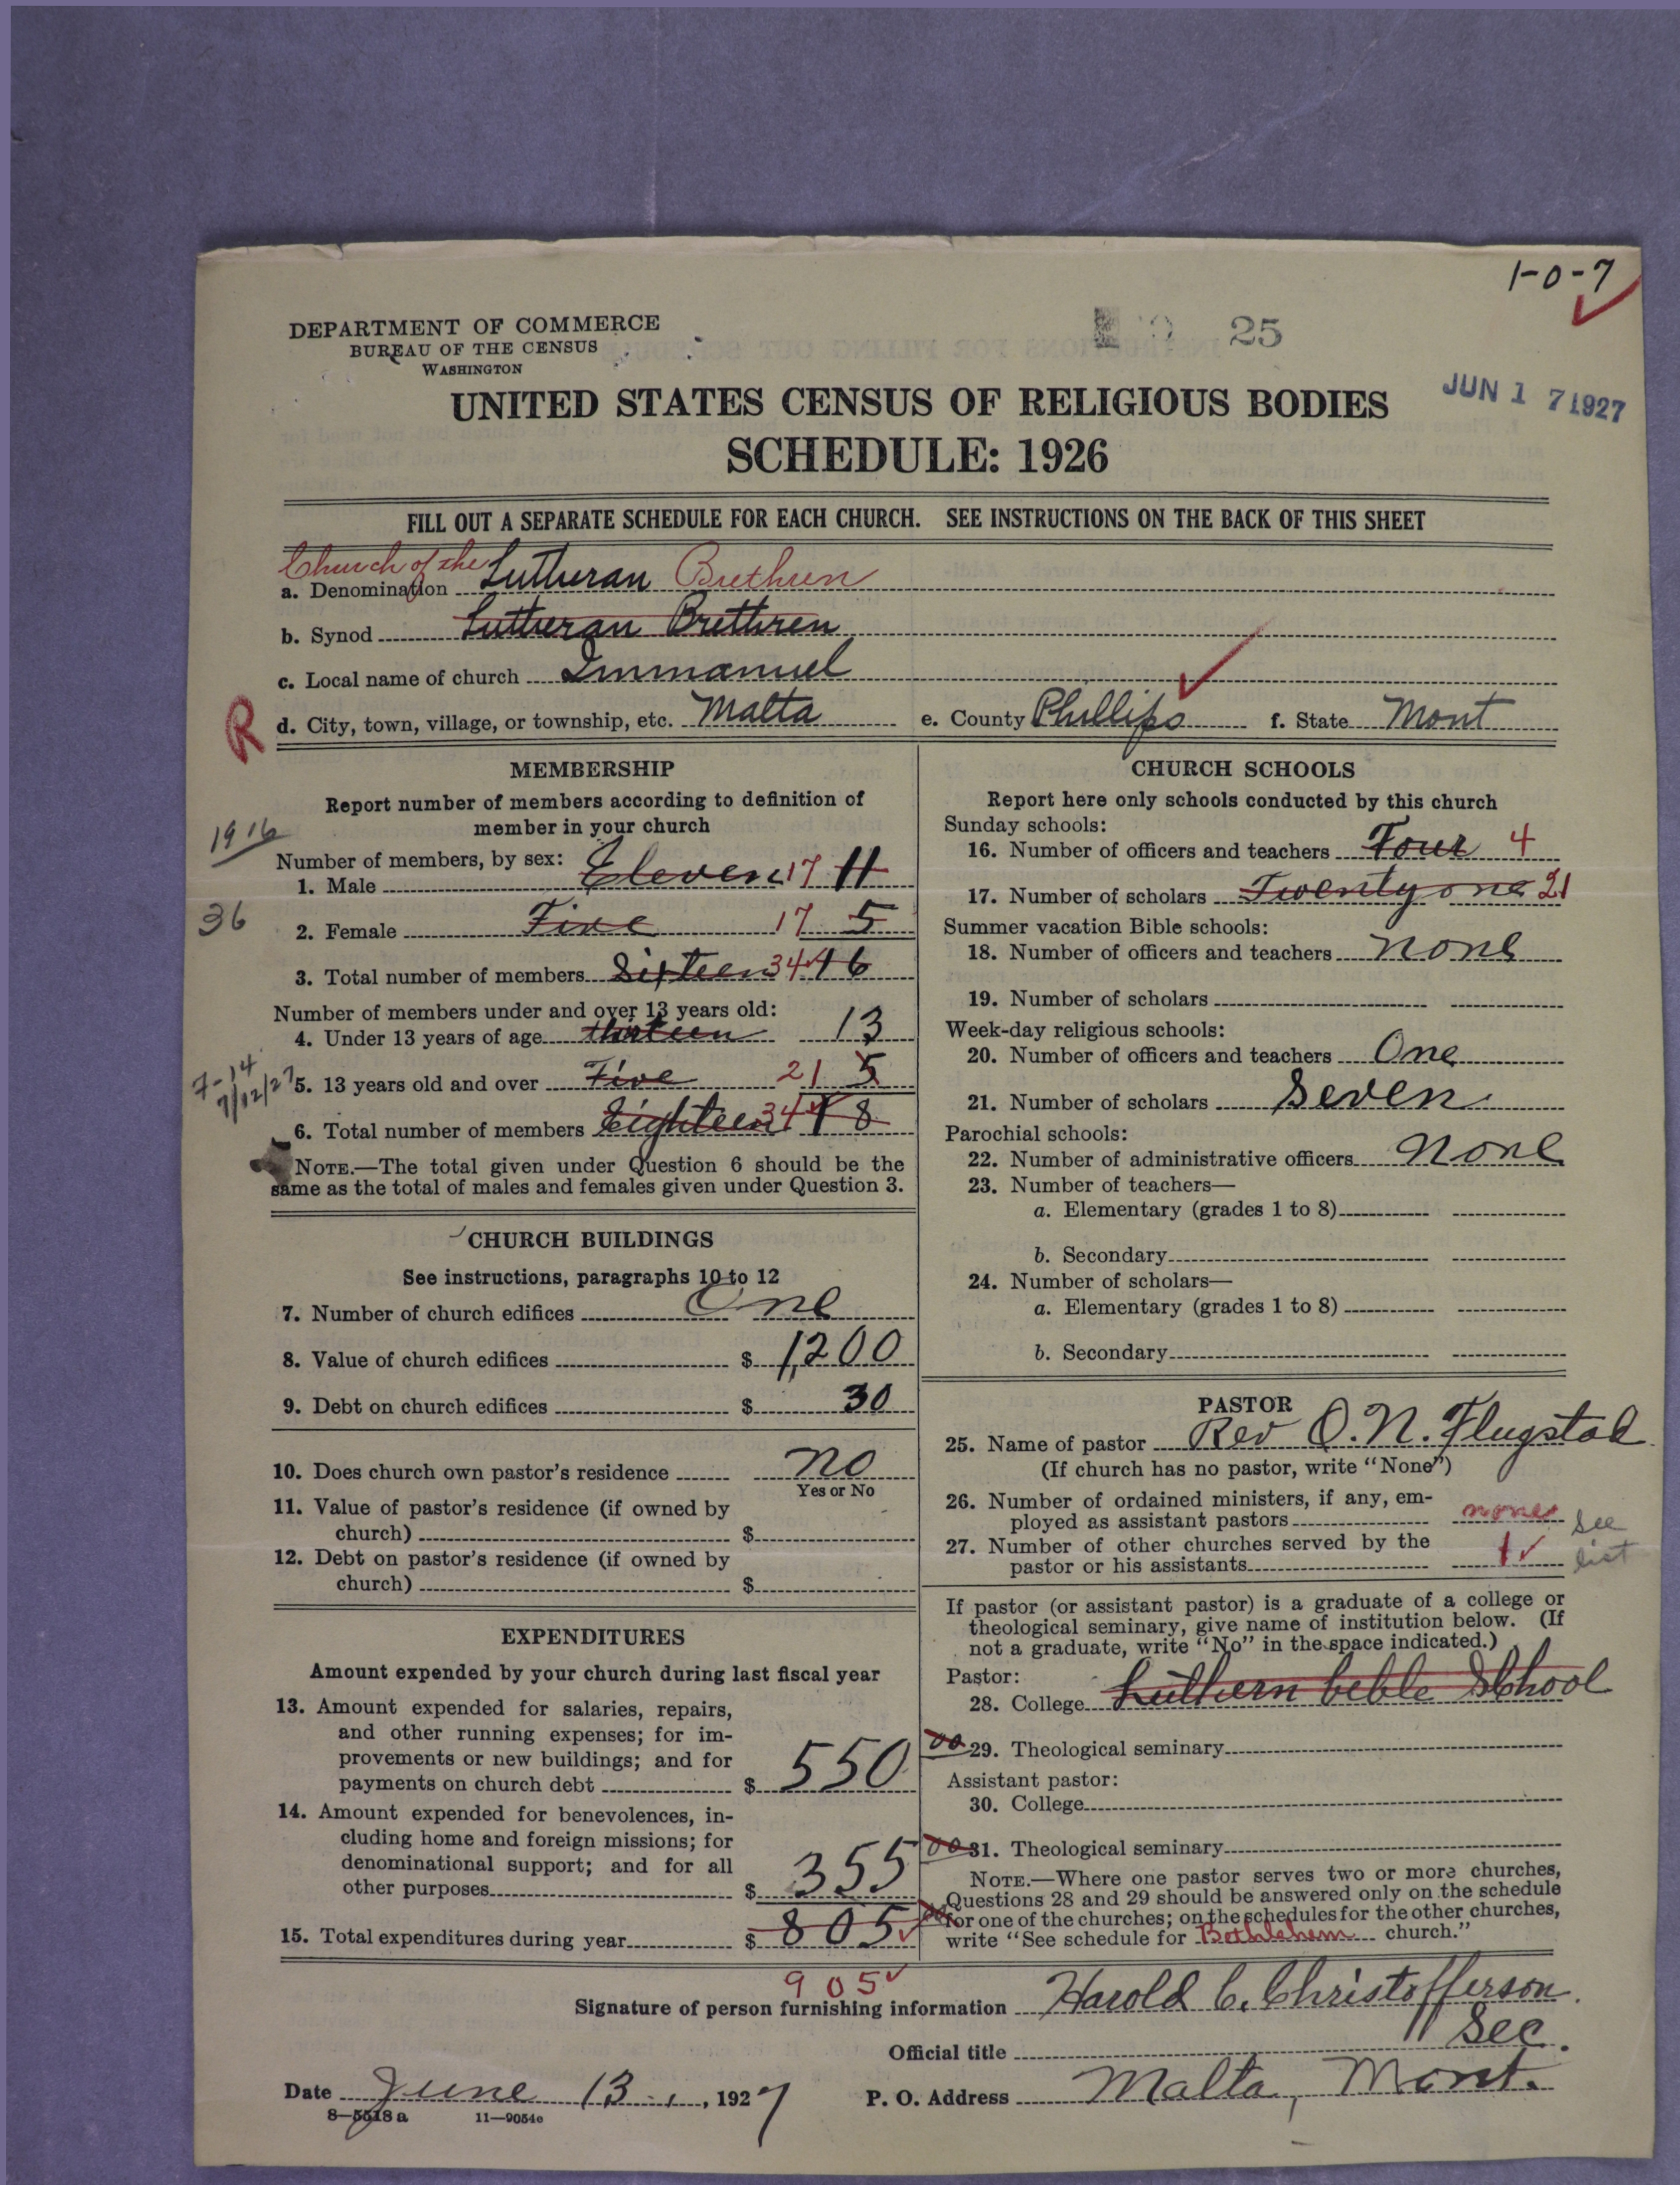 1-0-7
DEPARTMENT OF COMMERCE
BUREAU OF THE CENSUS
WASHINGTON
25
JUN 17 1927
UNITED STATES CENSUS OF RELIGIOUS BODIES
SCHEDULE: 1926
FILL OUT A SEPARATE SCHEDULE FOR EACH CHURCH. SEE INSTRUCTIONS ON THE BACK OF THIS SHEET
Church of the
a. Denomination Lutheran Brethren
b. Synod Lutheran Brethren
c. Local name of church Immanuel
R
d. City, town, village, or township, etc. Malta e. County Phillips f. State Mont
MEMBERSHIP
Report number of members according to definition of
member in your church
1916
Number of members, by sex:
1. Male Eleven 17 11
36
2. Female Five 17 5
3. Total number of members Sixteen 34 16
Number of members under and over 13 years old:
4. Under 13 years of age thirteen 13
7-14
7/12/27
5. 13 years old and over Five 21 5
6. Total number of members Eighteen 34 18
NOTE.—The total given under Question 6 should be the
same as the total of males and females given under Question 3.
CHURCH BUILDINGS
See instructions, paragraphs 10 to 12
7. Number of church edifices One
8. Value of church edifices $ 1,200
9. Debt on church edifices $ 30
10. Does church own pastor's residence no
Yes or No
11. Value of pastor's residence (if owned by
church) $
12. Debt on pastor's residence (if owned by
church) $
EXPENDITURES
Amount expended by your church during last fiscal year
13. Amount expended for salaries, repairs,
and other running expenses; for im-
provements or new buildings; and for
payments on church debt $ 550
14. Amount expended for benevolences, in-
cluding home and foreign missions; for
denominational support; and for all
other purposes $ 355
15. Total expenditures during year $ 805
905
CHURCH SCHOOLS
Report here only schools conducted by this church
Sunday schools:
16. Number of officers and teachers Four 4
17. Number of scholars Twenty one 21
Summer vacation Bible schools:
18. Number of officers and teachers none
19. Number of scholars
Week-day religious schools:
20. Number of officers and teachers One
21. Number of scholars Seven
Parochial schools:
22. Number of administrative officers none
23. Number of teachers—
a. Elementary (grades 1 to 8)
b. Secondary
24. Number of scholars—
a. Elementary (grades 1 to 8)
b. Secondary
PASTOR
25. Name of pastor Rev O. N. Flugstad
(If church has no pastor, write "None")
26. Number of ordained ministers, if any, em-
ployed as assistant pastors none
27. Number of other churches served by the
pastor or his assistants 1
see
list
If pastor (or assistant pastor) is a graduate of a college or
theological seminary, give name of institution below. (If
not a graduate, write "No" in the space indicated.)
Pastor:
28. College Luthern beble School
00 29. Theological seminary
Assistant pastor:
30. College
00 31. Theological seminary
NOTE.—Where one pastor serves two or more churches,
Questions 28 and 29 should be answered only on the schedule
for one of the churches; on the schedules for the other churches,
write "See schedule for Bethlehem church."
Signature of person furnishing information Harold C. Christofferson
Official title Sec.
Date June 13, 1927 P. O. Address Malta, Mont.
8—5518 a 11—9054e